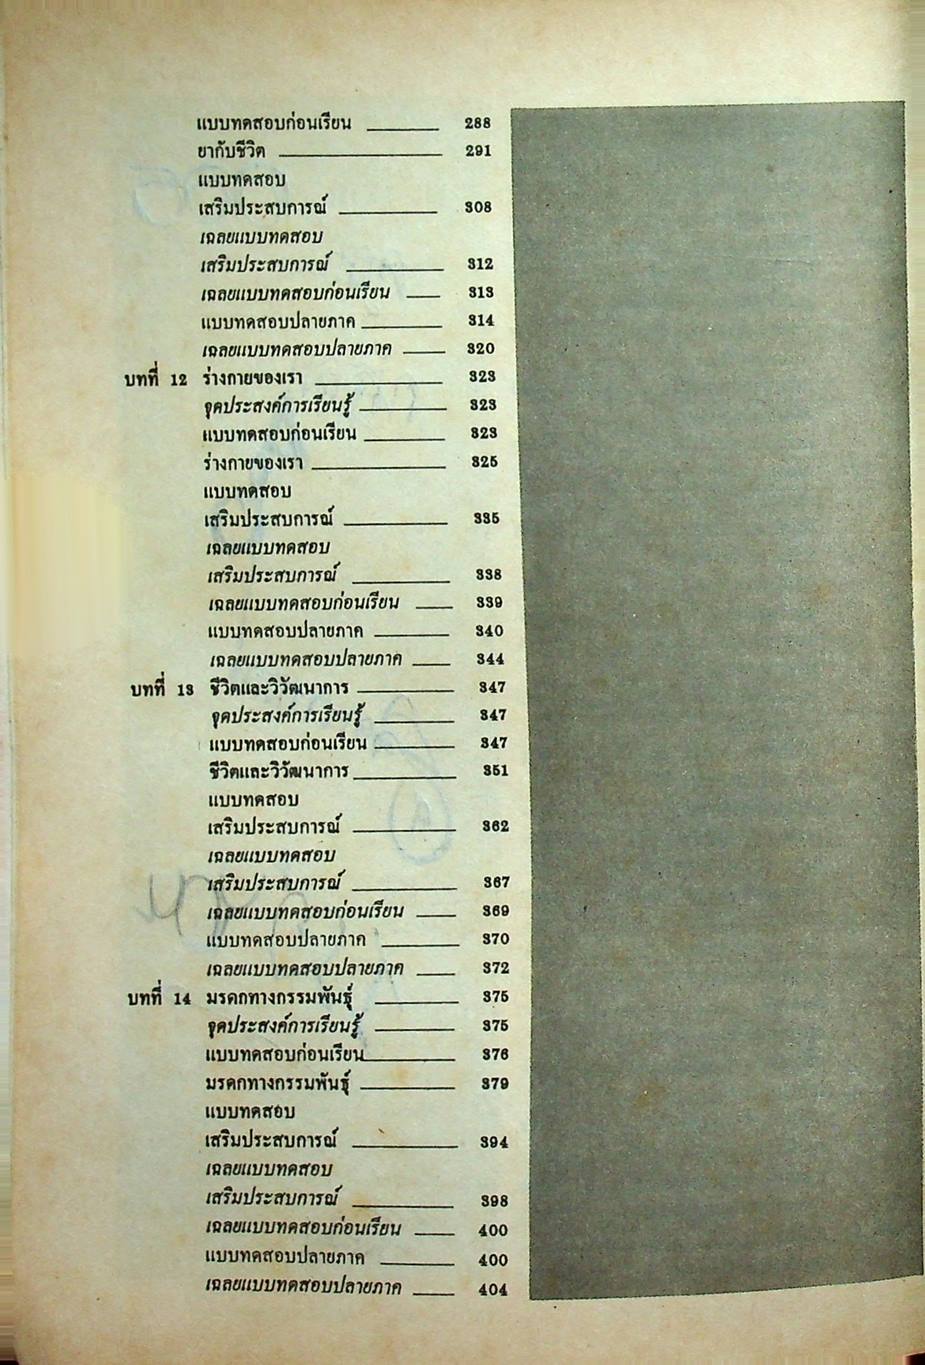 แบบทดสอบก่อนเรียน 288
ยากับชีวิต 291
แบบทดสอบ
เสริมประสบการณ์ 308
เฉลยแบบทดสอบ
เสริมประสบการณ์ 312
เฉลยแบบทดสอบก่อนเรียน 313
แบบทดสอบปลายภาค 314
เฉลยแบบทดสอบปลายภาค 320
บทที่ 12 ร่างกายของเรา 323
จุดประสงค์การเรียนรู้ 323
แบบทดสอบก่อนเรียน 323
ร่างกายของเรา 325
แบบทดสอบ
เสริมประสบการณ์ 335
เฉลยแบบทดสอบ
เสริมประสบการณ์ 338
เฉลยแบบทดสอบก่อนเรียน 339
แบบทดสอบปลายภาค 340
เฉลยแบบทดสอบปลายภาค 344
บทที่ 13 ชีวิตและวิวัฒนาการ 347
จุดประสงค์การเรียนรู้ 347
แบบทดสอบก่อนเรียน 347
ชีวิตและวิวัฒนาการ 351
แบบทดสอบ
เสริมประสบการณ์ 362
เฉลยแบบทดสอบ
เสริมประสบการณ์ 367
เฉลยแบบทดสอบก่อนเรียน 369
แบบทดสอบปลายภาค 370
เฉลยแบบทดสอบปลายภาค 372
บทที่ 14 มรดกทางกรรมพันธุ์ 375
จุดประสงค์การเรียนรู้ 375
แบบทดสอบก่อนเรียน 376
มรดกทางกรรมพันธุ์ 379
แบบทดสอบ
เสริมประสบการณ์ 394
เฉลยแบบทดสอบ
เสริมประสบการณ์ 398
เฉลยแบบทดสอบก่อนเรียน 400
แบบทดสอบปลายภาค 400
เฉลยแบบทดสอบปลายภาค 404